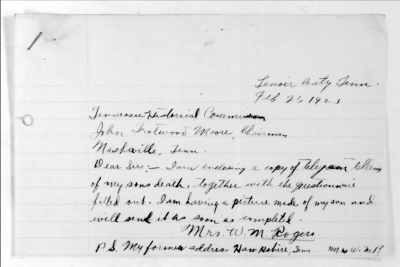 1
Lenoir City Tenn.
Feb 26, 1921
Tennessee Historical Commission
John Trotwood Moore, Chairman
Nashville, Tenn.
Dear Sir:- I am enclosing a copy of telegram telling
of my sons death, together with the questionnaire
filled out. I am having a picture made of my son and
will send it as soon as completed.
Mrs. W. M. Rogers
P.S. My former address Tenn. Mrs W. M. R